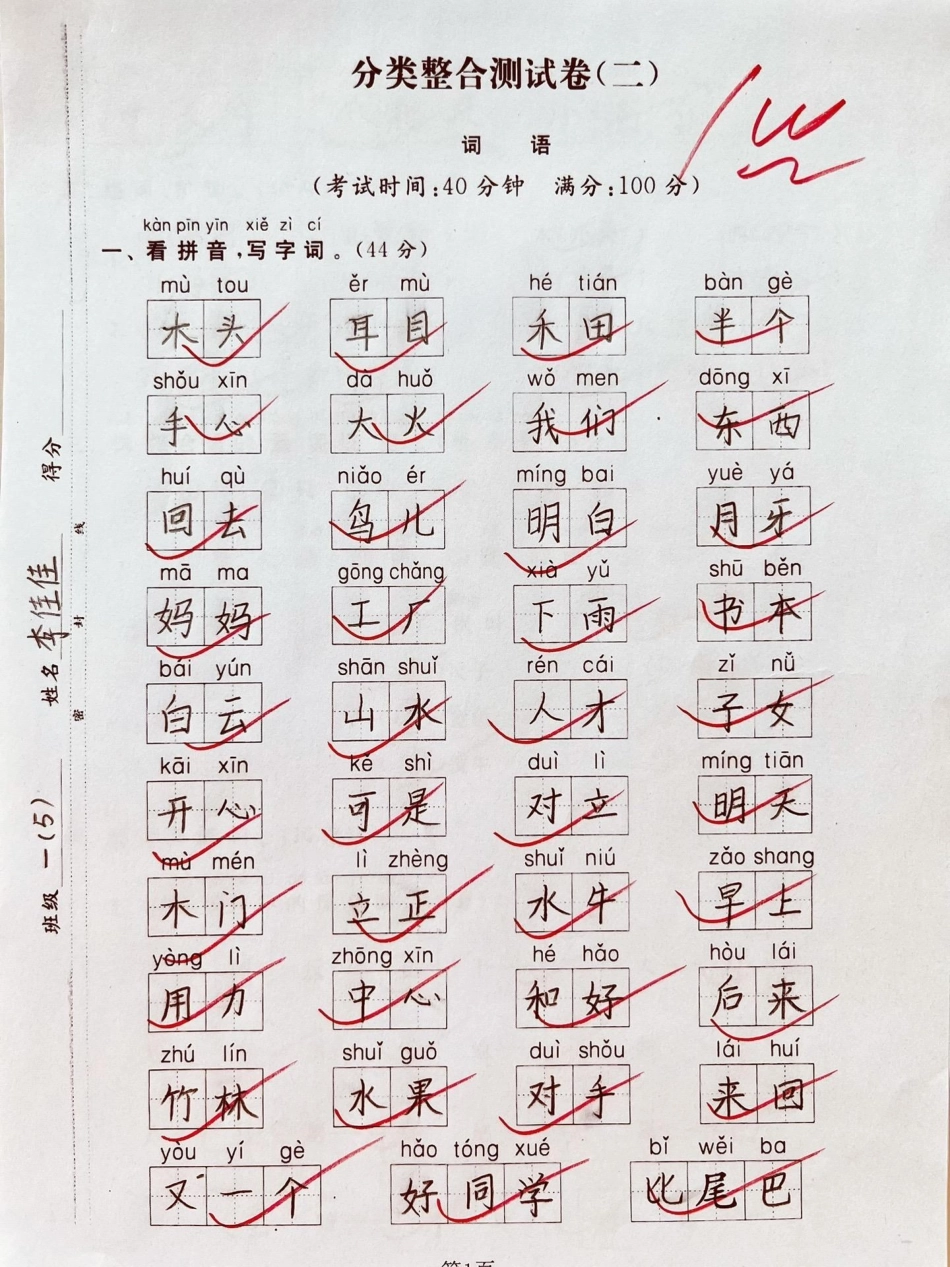 分类整合测试卷(二)
词 语
(考试时间:40分钟 满分:100分)
kàn pīn yīn xiě zì cí
一、看拼音,写字词。(44分)
mù tou ěr mù hé tián bàn gè
木头 耳目 禾田 半个
shǒu xīn dà huǒ wǒ men dōng xī
手心 大火 我们 东西
huí qù niǎo ér míng bai yuè yá
回去 鸟儿 明白 月牙
mā ma gōng chǎng xià yǔ shū běn
妈妈 工厂 下雨 书本
bái yún shān shuǐ rén cái zǐ nǚ
白云 山水 人才 子女
kāi xīn kě shì duì lì míng tiān
开心 可是 对立 明天
mù mén lì zhèng shuǐ niú zǎo shang
木门 立正 水牛 早上
yòng lì zhōng xīn hé hǎo hòu lái
用力 中心 和好 后来
zhú lín shuǐ guǒ duì shǒu lái huí
竹林 水果 对手 来回
yòu yí gè hǎo tóng xué bǐ wěi ba
又一个 好同学 比尾巴
班级 一(5) 姓名 李佳佳 得分
密 封 线
第1页